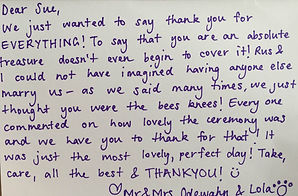 Dear Sue,
We just wanted to say thank you for
EVERYTHING! To say that you are an absolute
treasure doesn't even begin to cover it! Rus &
I could not have imagined having anyone else
marry us - as we said many times, we just
thought you were the bees knees! Every one
commented on how lovely the ceremony was
and we have you to thank for that! It
was just the most lovely, perfect day! Take,
care, all the best & THANKYOU! ☺
♡Mr & Mrs & Lola